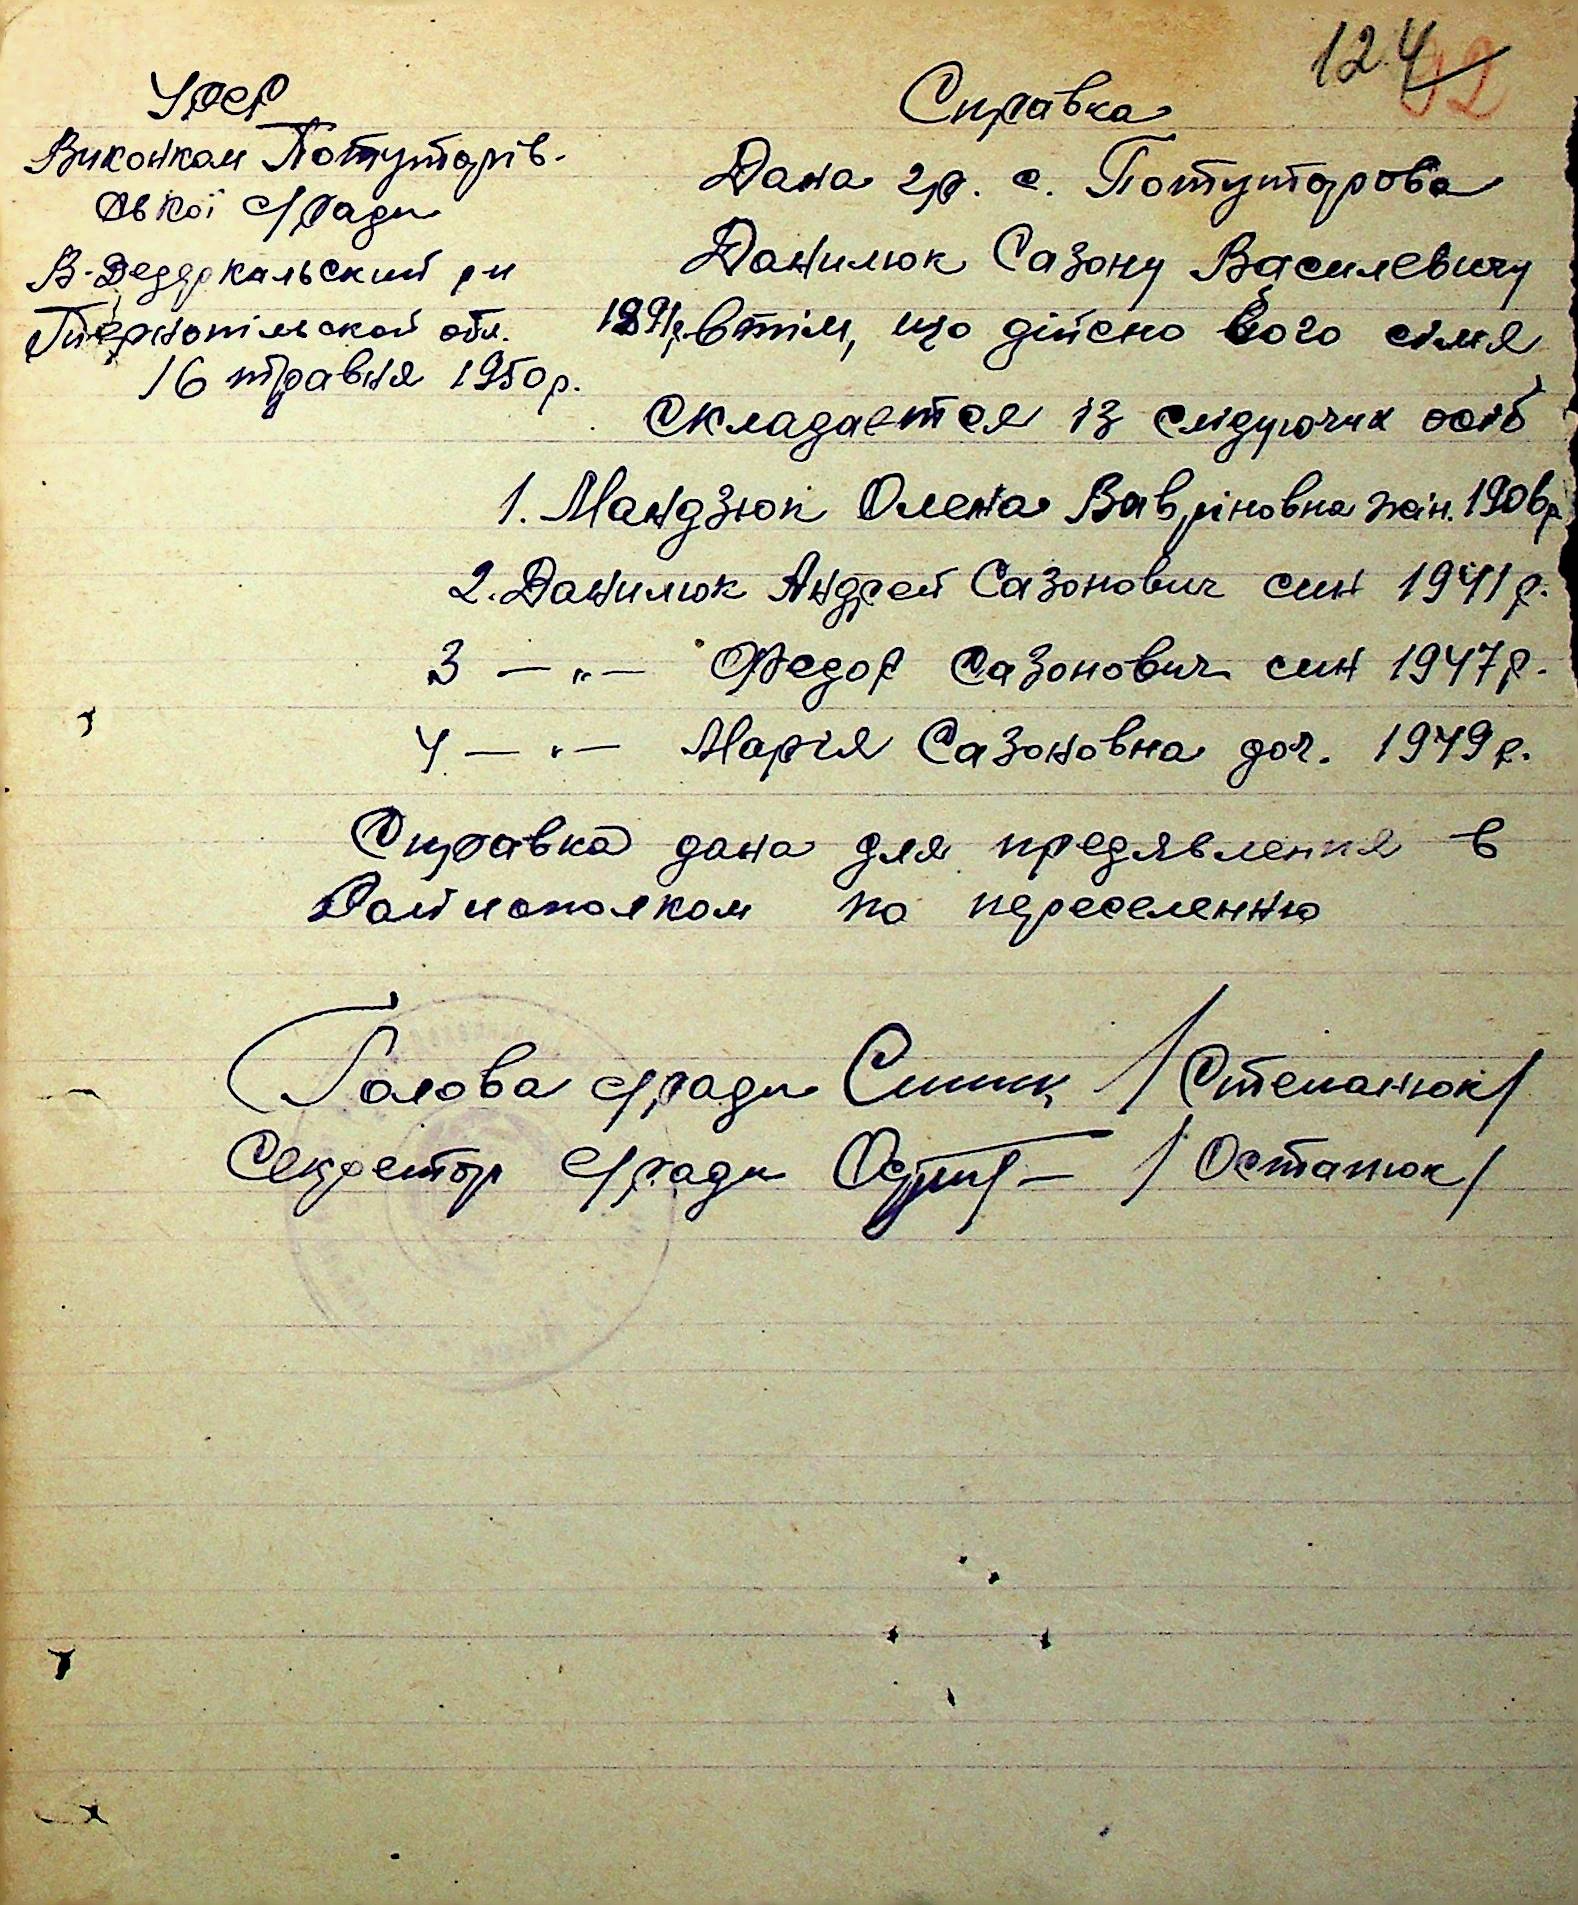 124
92
УРСР
Виконком Потуторів-
ської с/ради
В-Дедеркальский р-н
Тнернопільской обл.
16 травня 1950р.
Справка
Дана гр. с. Потуторова
Данилюк Сазону Василевичу
1891р. втім, що дійсно його сімя
складается із слідуючих осіб
1. Мандзюк Олена Вавріновна жін. 1906р
2. Данилюк Андрей Сазонович син 1941р.
3 — „ — Федор Сазонович син 1947р.
4 — „ — Марія Сазоновна доч. 1949р.
Справка дана для предявления в
Райисполком по переселенню
Голова с/ради /Степанюк/
Секретор с/ради /Остапюк/